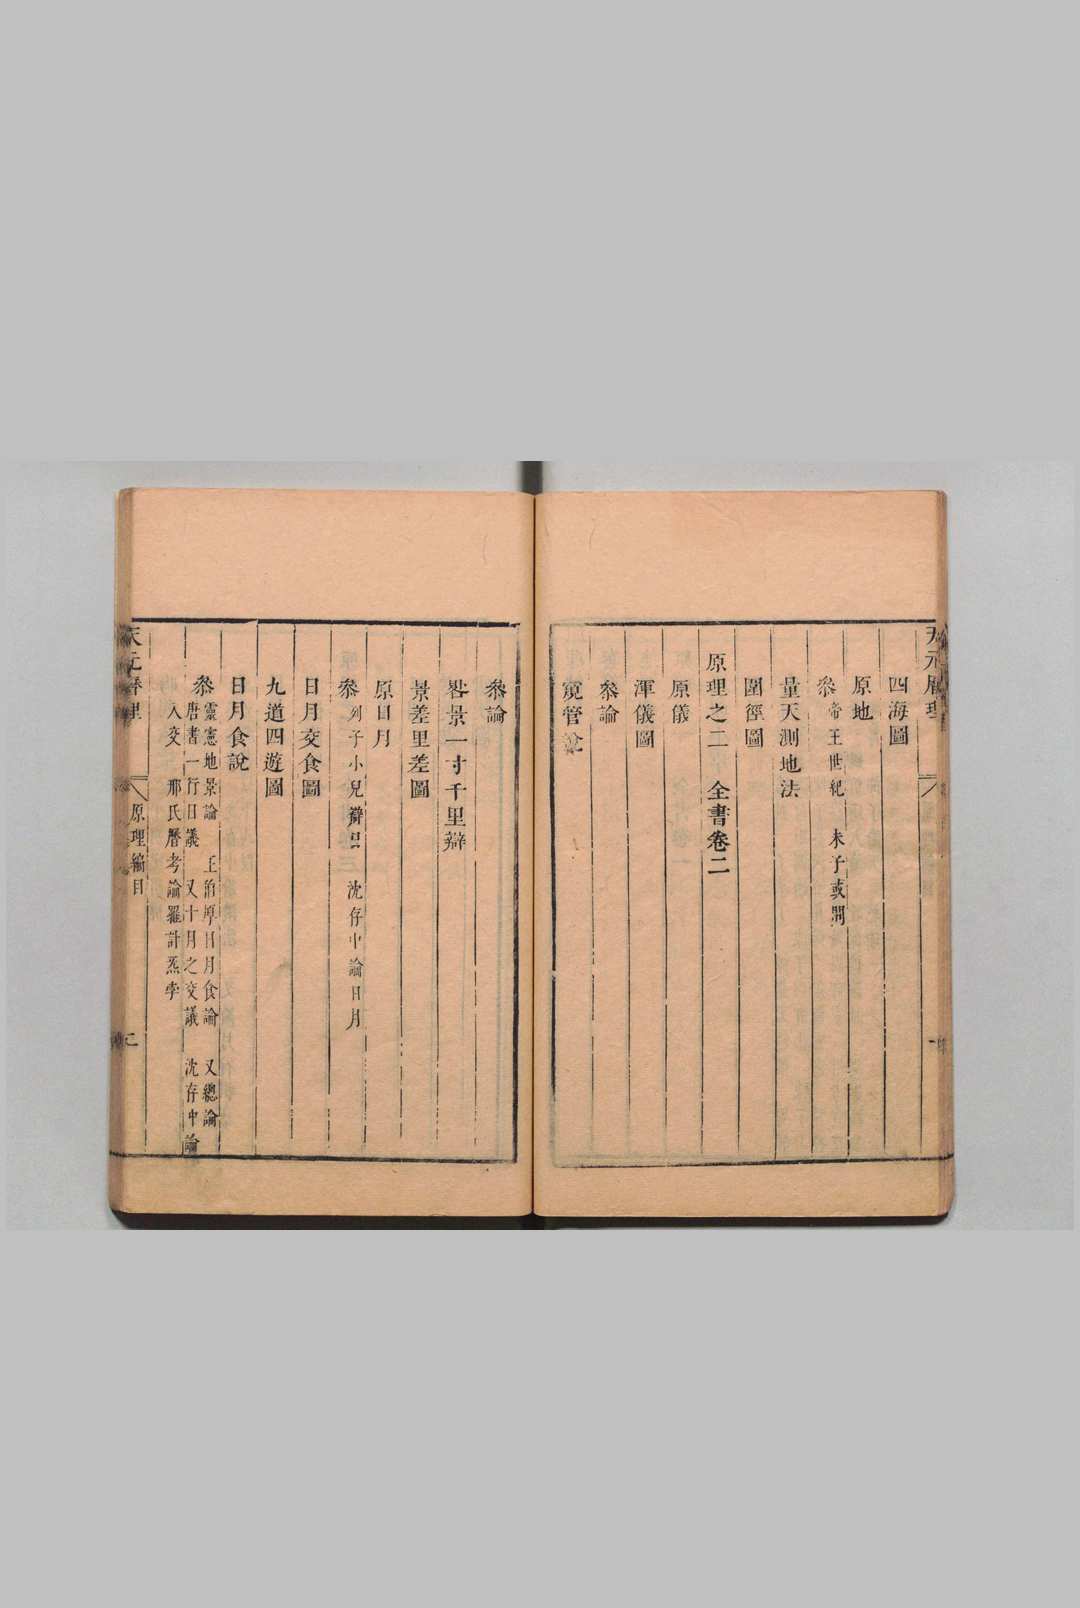 天元曆理
四海圖
原地
叅帝王世紀 朱子或問
量天測地法
圍徑圖
原理之二 全書卷二
原儀
渾儀圖
叅論
窺管説
叅論
晷景一寸千里辯
景差里差圖
原日月
叅列子小兒辯日 沈存中論日月
日月交食圖
九道四遊圖
日月食說
叅靈憲地景論 王治厚日月食論 又總論
唐書一行日議 又十月之交議 沈存中論
入交 邢氏曆考論羅計炁孛
天元曆理 原理編目 二